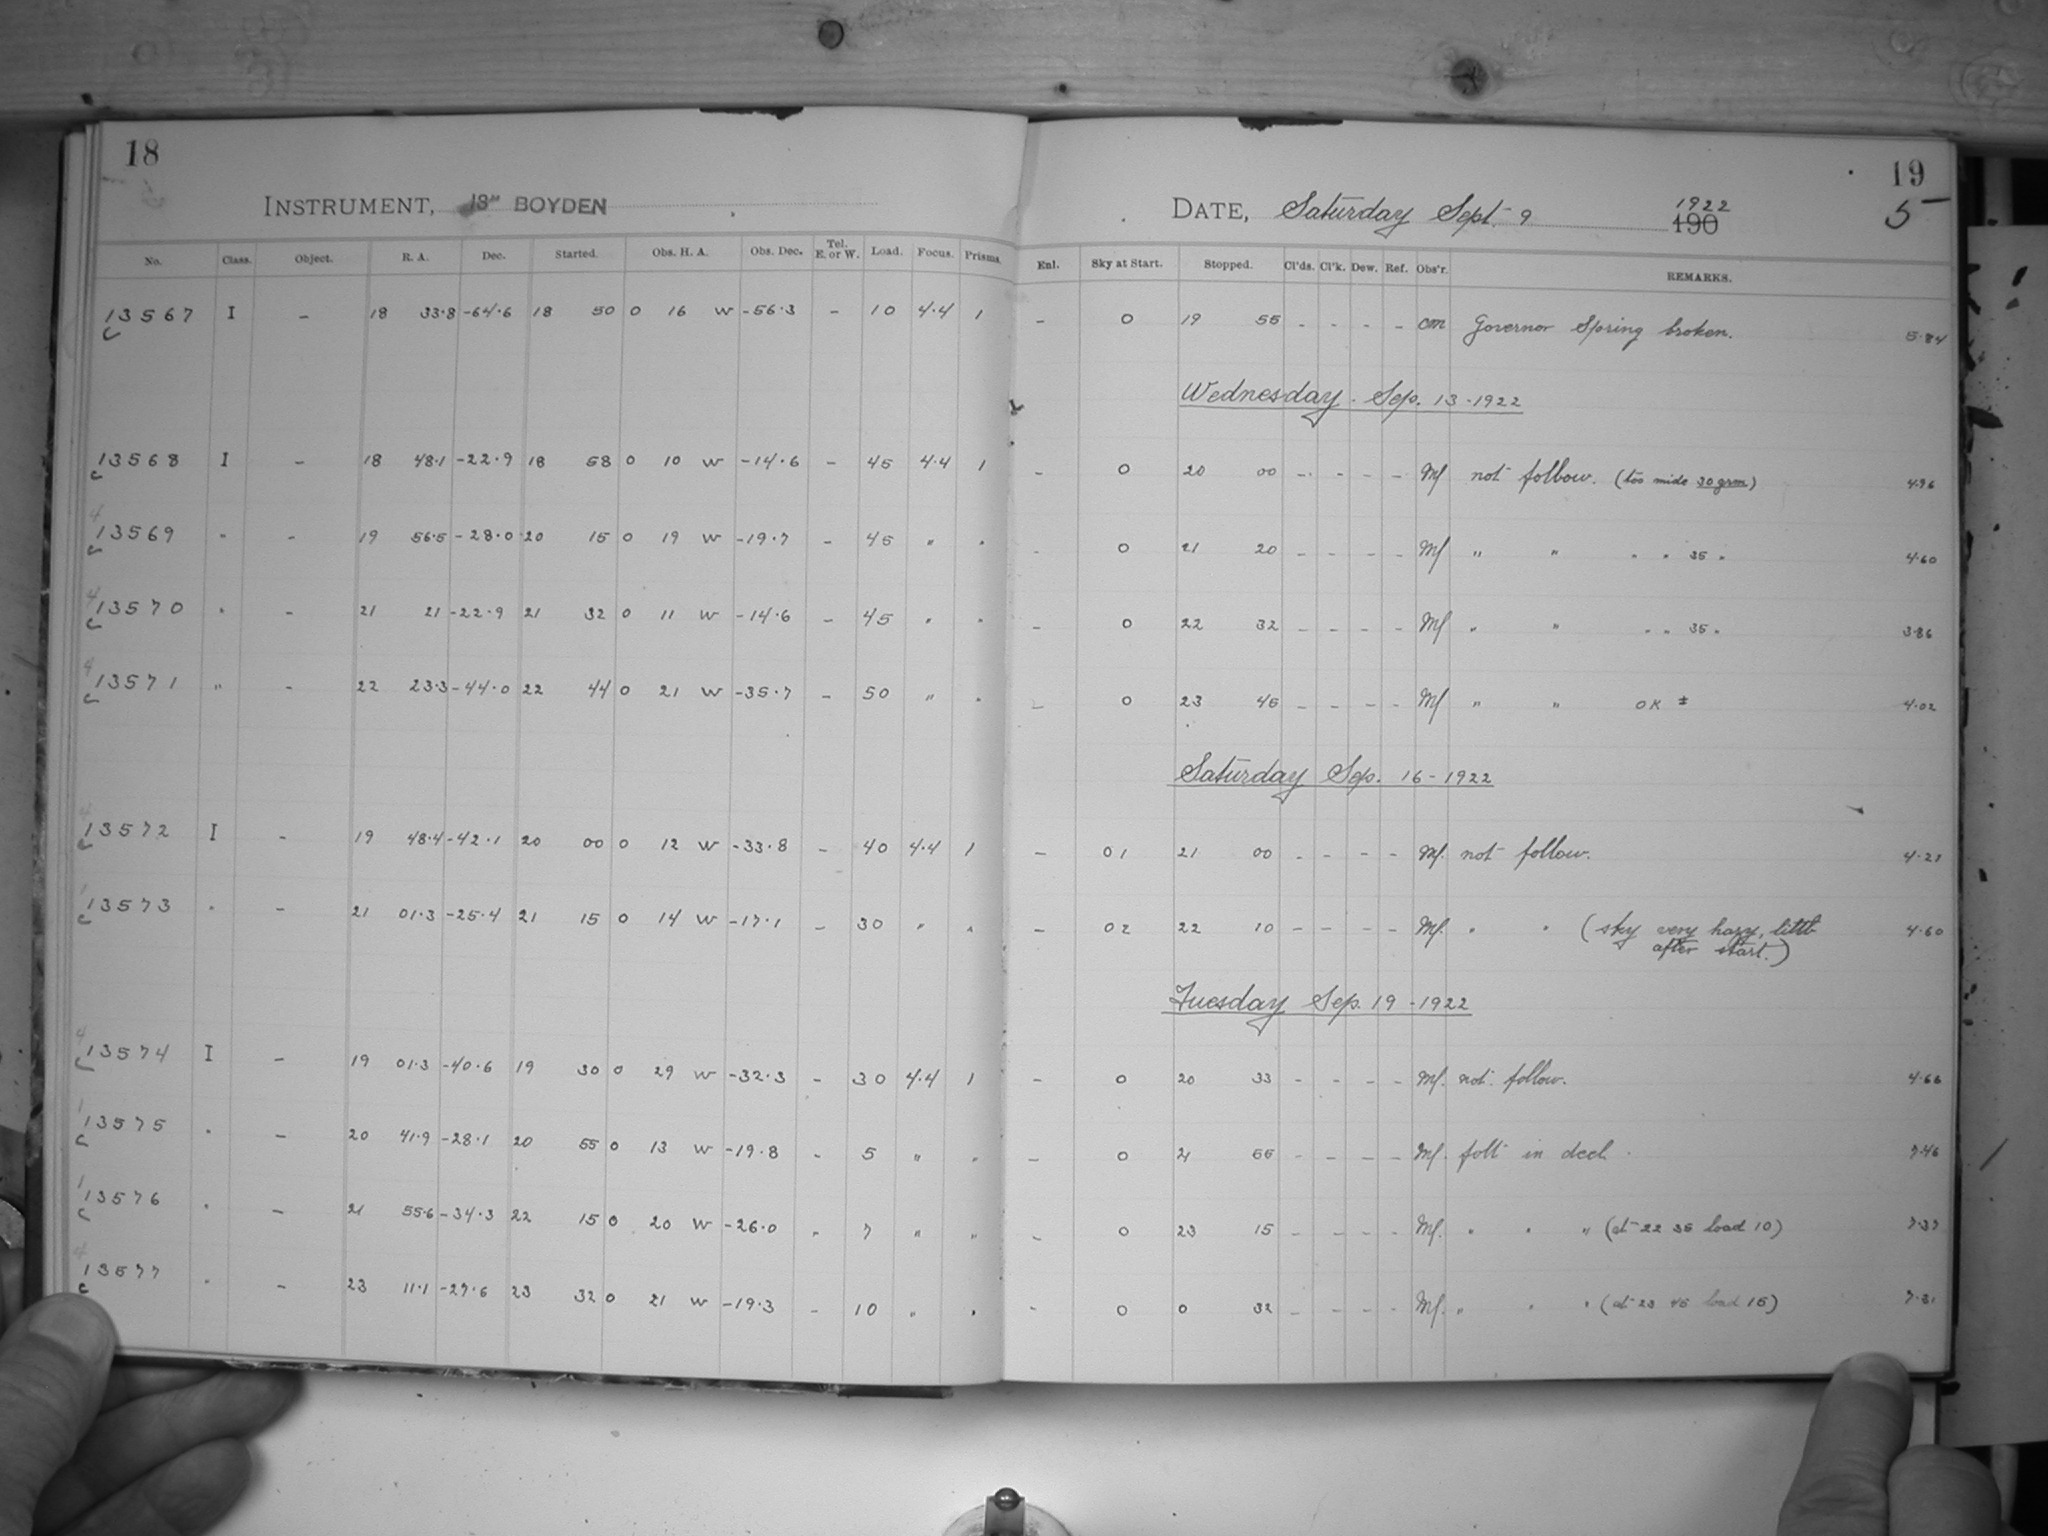 18
INSTRUMENT, 13" BOYDEN
No. Class. Object. R. A. Dec. Started. Obs. H. A. Obs. Dec. Tel. E. or W. Load. Focus. Prisms.
13567 I – 18 33.8 -64.6 18 50 0 16 W -56.3 – 10 4.4 1
13568 I – 18 48.1 -22.9 18 58 0 10 W -14.6 – 45 4.4 1
13569 " – 19 56.5 -28.0 20 15 0 19 W -19.7 – 45 " "
13570 " – 21 21 -22.9 21 32 0 11 W -14.6 – 45 " "
13571 " – 22 23.3 -44.0 22 44 0 21 W -35.7 – 50 " "
13572 I – 19 48.4 -42.1 20 00 0 12 W -33.8 – 40 4.4 1
13573 " – 21 01.3 -25.4 21 15 0 14 W -17.1 – 30 " "
13574 I – 19 01.3 -40.6 19 30 0 29 W -32.3 – 30 4.4 1
13575 " – 20 41.9 -28.1 20 55 0 13 W -19.8 – 5 " "
13576 " – 21 55.6 -34.3 22 15 0 20 W -26.0 " 7 " "
13577 " – 23 11.1 -27.6 23 32 0 21 W -19.3 – 10 " "
19
DATE, Saturday Sept. 9 1922 190
5
Enl. Sky at Start. Stopped. Cl'ds. Cl'k. Dew. Ref. Obs'r. REMARKS.
– 0 19 55 – – – – Cm Governor Spring broken. 5.84
Wednesday. Sep. 13-1922
– 0 20 00 – – – – Mf not follow. (too mide 30 grm) 4.96
– 0 21 20 – – – – Mf " " " " 35 " 4.60
– 0 22 32 – – – – Mf " " " " 35 " 3.86
– 0 23 45 – – – – Mf " " OK ± 4.02
Saturday Sep. 16-1922
– 01 21 00 – – – – Mf. not follow. 4.21
– 02 22 10 – – – – Mf. " " (sky very hazy, little
after start.) 4.60
Tuesday Sep. 19-1922
– 0 20 33 – – – – Mf. not follow. 4.66
– 0 21 55 – – – – Mf. in decl. 7.46
– 0 23 15 – – – – Mf. " " " (at 22 35 load 10) 7.37
– 0 0 32 – – – – Mf. " " " (at 23 45 load 15) 7.31